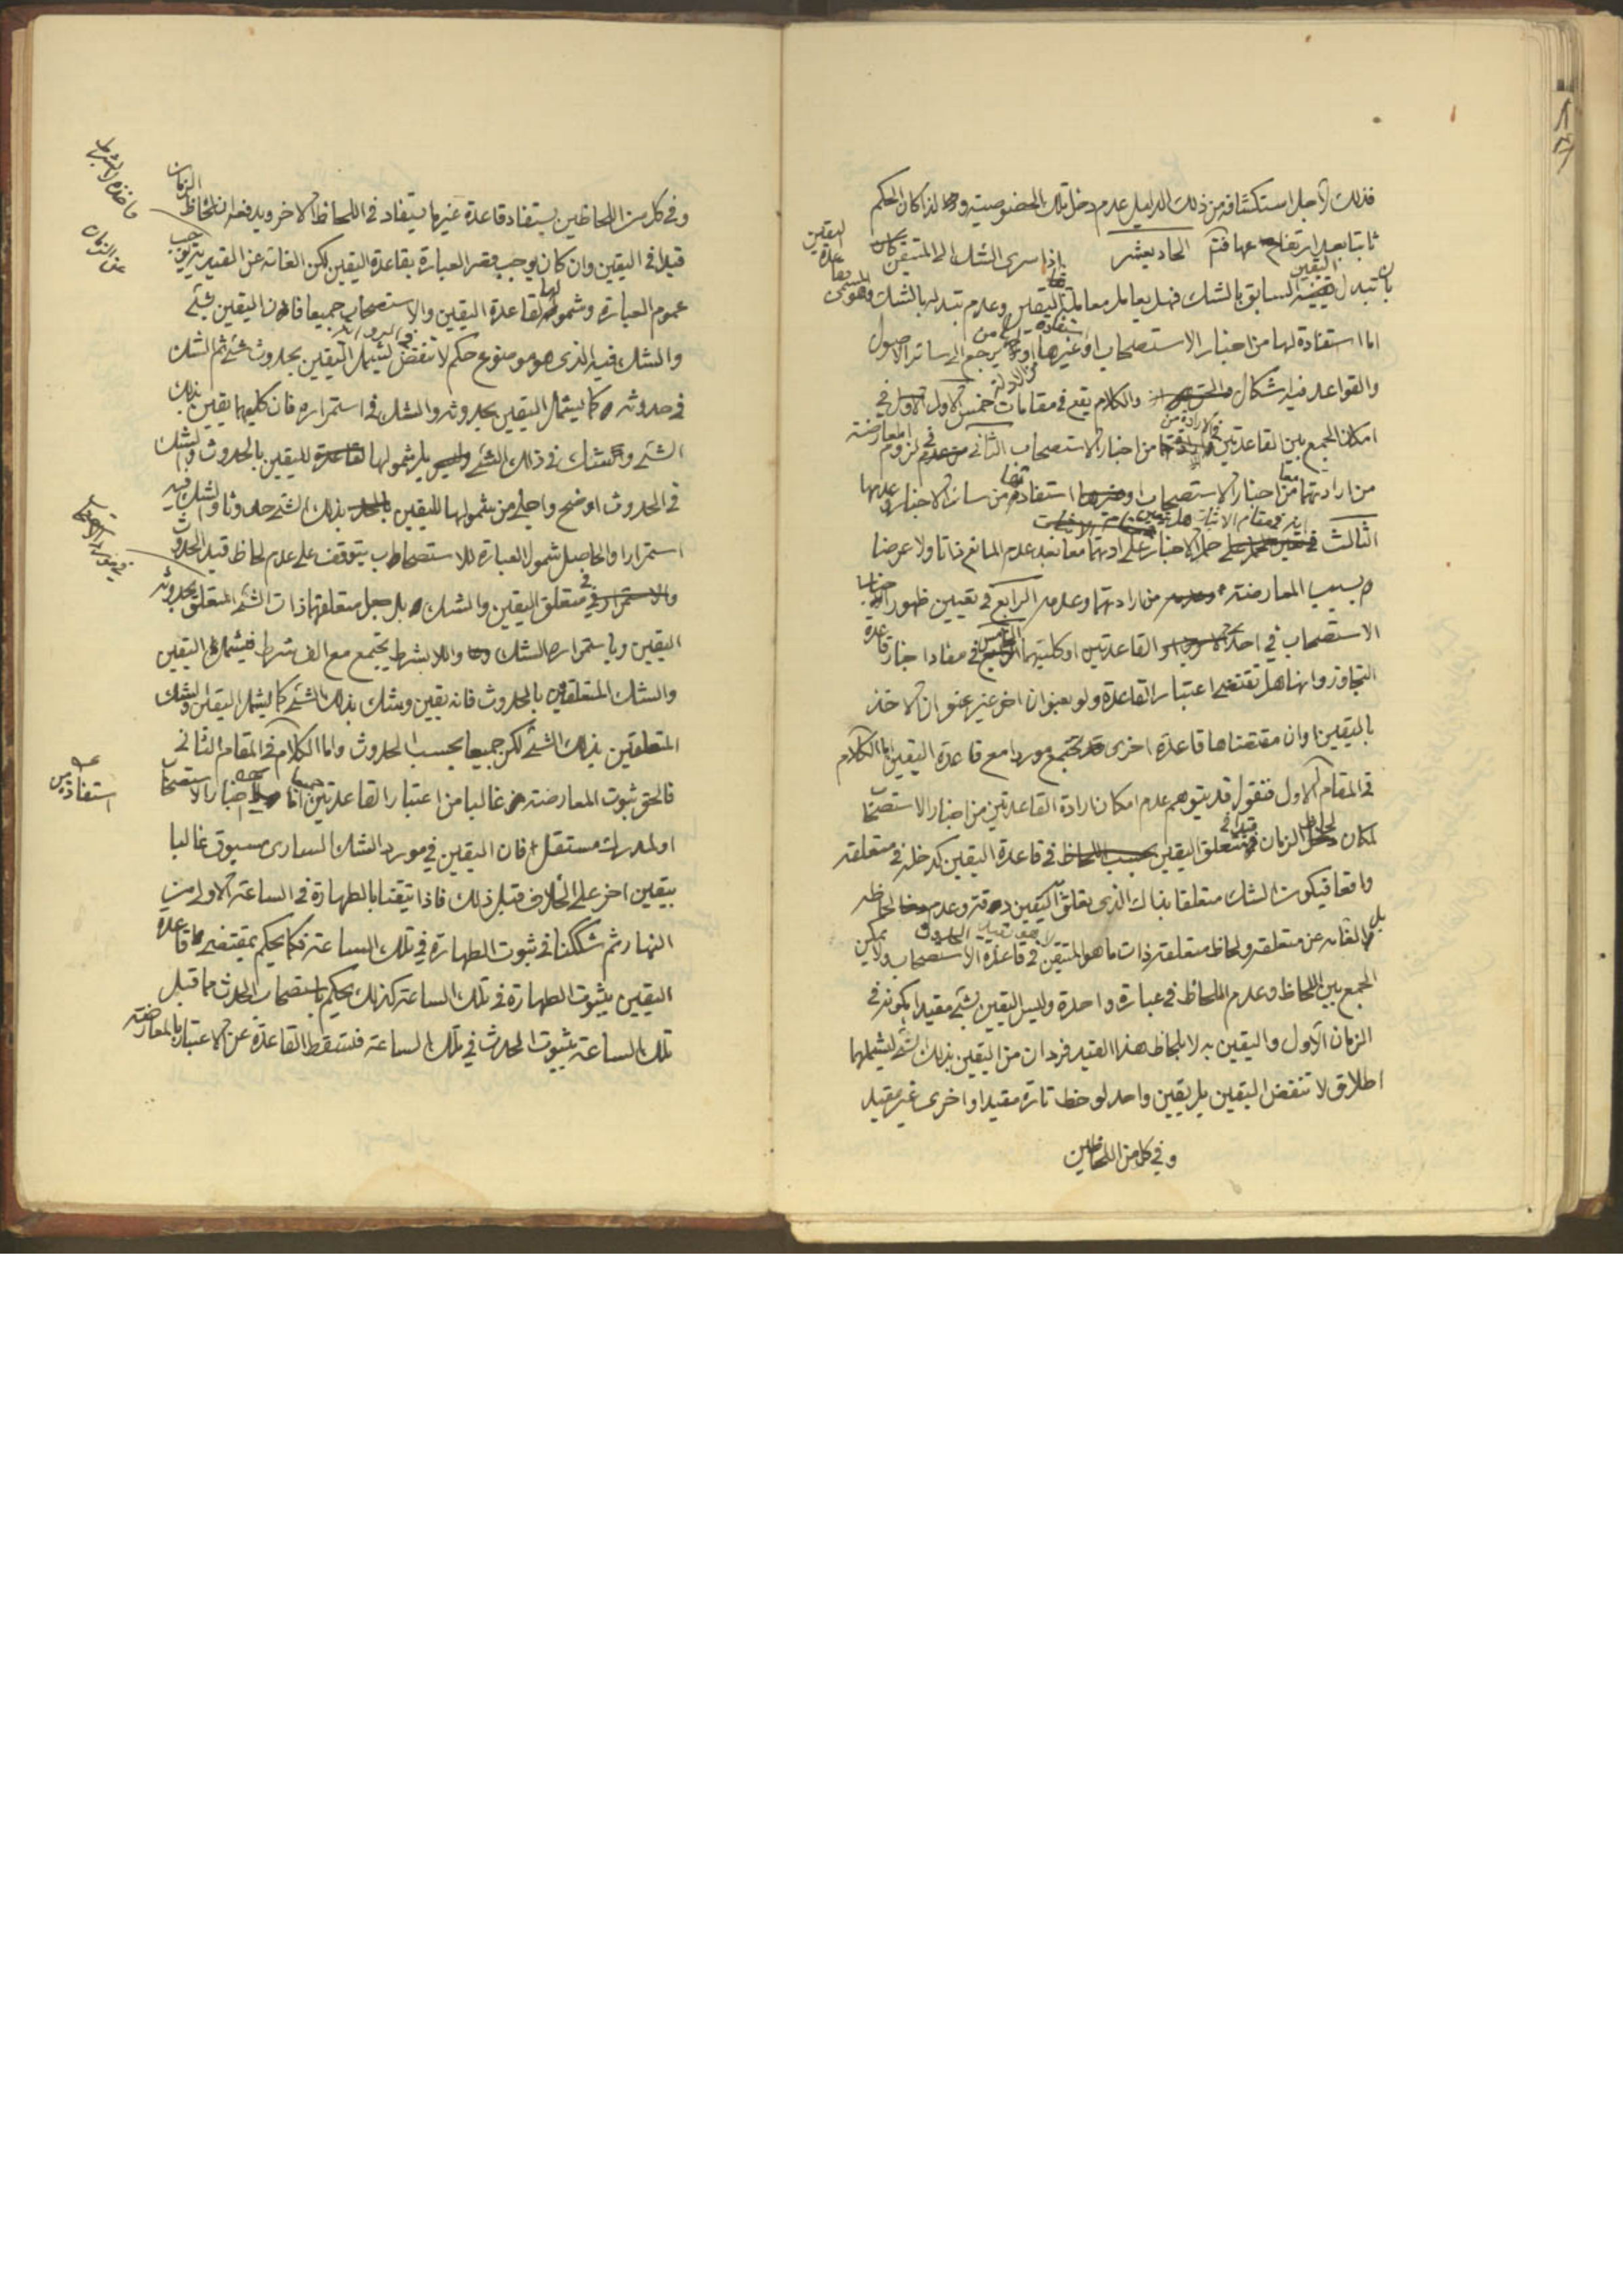 فذلك لاجل استكشافه من ذلك الدليل عدم دخل تلك الخصوصية ولذا كان الحكم
ثابتا بعد ارتفاعها فتم الحاديعشر اذا سرى الشك الى المتيقن كان
بان تبدل اليقين السابق بالشك فهل يعامل معاملة اليقين وعدم تبدله بالشك وهو المسمى بقاعدة اليقين
اما استفادة لها من اخبار الاستصحاب او غيرها او يرجع الى سائر الاصول
والقواعد فيه اشكال والكلام يقع في مقامات خمس الاول في
امكان الجمع بين القاعدتين في الارادة من اخبار الاستصحاب الثاني في لزوم المعارضة
من ارادتهما معا من اخبار الاستصحاب او استفادتها من سائر الاخبار وعدمها
الثالث في حمل الاخبار على ارادتهما معا بعد عدم المانع ذاتا ولا عرضا
بسبب المعارضة من ارادتهما وعدمه الرابع في تعيين ظهور اخبار
الاستصحاب في احد القاعدتين او كلتيهما الخامس في مفاد اخبار قاعدة
التجاوز وانها هل تقتضى اعتبار القاعدة ولو بعنوان اخر غير عنوان الاخذ
باليقين او ان مقتضاها قاعدة اخرى قد تجتمع موردا مع قاعدة اليقين اما الكلام
في المقام الاول فنقول قد يتوهم عدم امكان ارادة القاعدتين من اخبار الاستصحاب
لمكان لحاظ الزمان قيدا في متعلق اليقين في قاعدة اليقين كدخله في متعلقه
واقعا فيكون الشك متعلقا بذاك الذى تعلق اليقين وعدم لحاظه
بل الغائه عن متعلقه ولحاظ متعلقه ذات ما هو المتيقن في قاعدة الاستصحاب ولا يمكن
الجمع بين اللحاظ وعدم اللحاظ في عبارة واحدة وليس اليقين بشئ مقيدا بكونه في
الزمان الاول واليقين به لا بلحاظ هذا القيد فردان من اليقين بذلك الشئ ليشملهما
اطلاق لا تنقض اليقين بل يقين واحد لوحظ تارة مقيدا واخرى غير مقيد
وفي كل من اللحاظين
وفي كل من اللحاظين يستفاد قاعدة غير ما يستفاد في اللحاظ الاخر ويدفعه ان لحاظ الزمان
قيدا في اليقين وان كان يوجب قصر العبارة بقاعدة اليقين لكن الغائه عن القيدية يوجب
عموم العبارة وشمولها لقاعدة اليقين والاستصحاب جميعا فان اليقين بشئ
والشك فيه الذى هو موضوع حكم لا تنقض ليشمل اليقين بحدوث شئ ثم الشك
في حدوثه كما يشمل اليقين بحدوثه والشك في استمراره فان كليهما يقين بذلك
الشئ وشك في ذلك الشئ بل شمولها لليقين بالحدوث والشك
في الحدوث اوضح واجلى من شمولها لليقين بذلك الشئ حدوثا والشك فيه
استمرارا والحاصل شمول العبارة للاستصحاب يتوقف على عدم لحاظ قيد الحدوث
والاستمرار في متعلق اليقين والشك بل جعل متعلقهما ذات الشئ المتعلق بحدوثه
اليقين وباستمراره الشك واللا بشرط يجتمع مع الف شرط فيشمل اليقين
والشك المتعلقين بالحدوث فانه يقين وشك بذلك الشئ كما يشمل اليقين والشك
المتعلقين بذلك الشئ لكن جميعا بحسب الحدوث واما الكلام في المقام الثانى
فالحق ثبوت المعارضة غالبا من اعتبار القاعدتين جميعا اخبار الاستصحاب
او لمدرك مستقل فان اليقين في مورد الشك السارى مسبوق غالبا
بيقين اخر على الخلاف قبل ذلك فاذا تيقنا بالطهارة في الساعة الاولى من
النهار ثم شككنا في ثبوت الطهارة في تلك الساعة فكما يحكم بمقتضى قاعدة
اليقين بثبوت الطهارة في تلك الساعة كذلك يحكم باستصحاب الحدث مما قبل
تلك الساعة بثبوت الحدث في تلك الساعة فتسقط القاعدة عن الاعتبار بالمعارضة